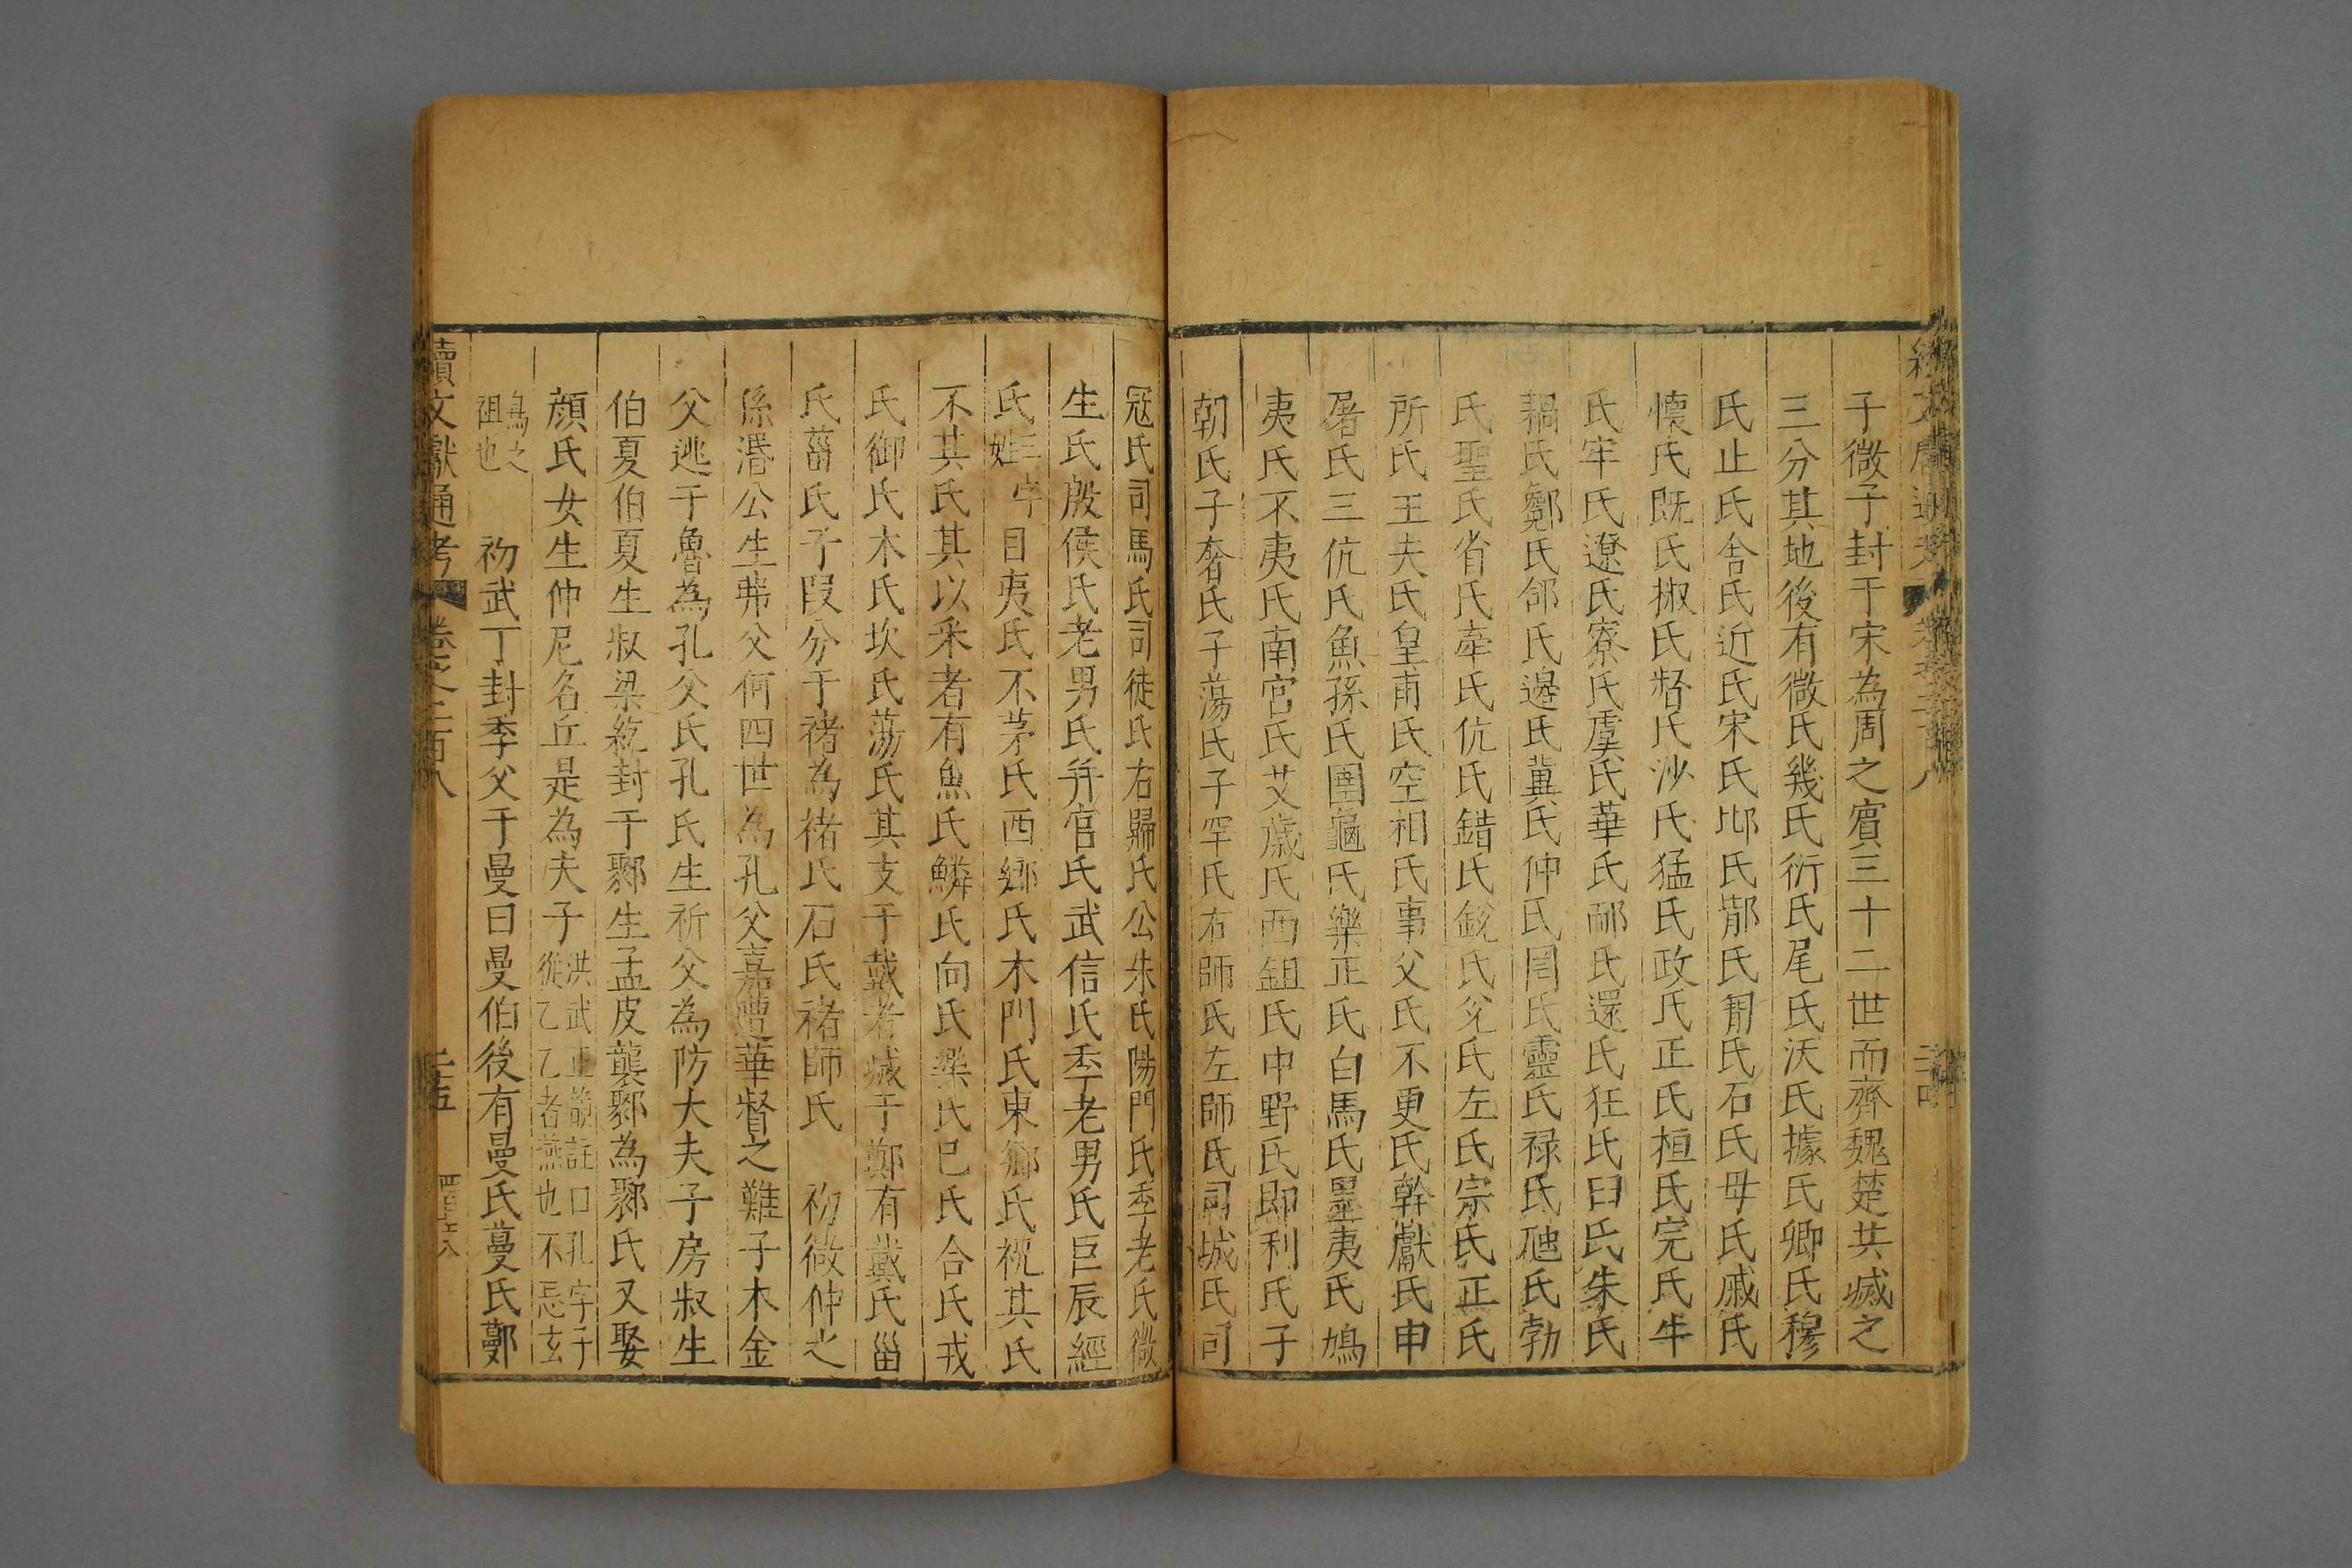 子微子封于宋為周之賓三十二世而齊魏楚共滅之
三分其地後有微氏幾氏衍氏尾氏沃氏據氏卿氏穆
氏止氏舍氏近氏宋氏邶氏鄁氏鄑氏石氏毋氏戚氏
懷氏既氏椒氏督氏沙氏猛氏政氏正氏桓氏完氏牛
氏牢氏遼氏寮氏虞氏華氏鄏氏還氏狂氏曰氏朱氏
耦氏鄭氏郃氏邊氏冀氏仲氏罔氏靈氏祿氏䣀氏勃
氏聖氏省氏牽氏伉氏錯氏銳氏兊氏左氏宗氏正氏
所氏王夫氏皇甫氏空相氏事父氏不更氏幹獻氏申
屠氏三伉氏魚孫氏圍龜氏樂正氏白馬氏墨夷氏鳩
夷氏不夷氏南宮氏艾歲氏西鉏氏中野氏即利氏子
朝氏子奢氏子蕩氏子罕氏右師氏左師氏司城氏司
冦氏司馬氏司徒氏右歸氏公朱氏陽門氏季老氏微
生氏殷侯氏老男氏幷官氏武信氏季老男氏巨辰經
氏三字姓目夷氏不茅氏西鄉氏木門氏東鄉氏祝其氏
不其氏其以釆者有魚氏鱗氏向氏樂氏巳氏合氏戎
氏御氏木氏坎氏蕩氏其支于戴者滅于鄭有戴氏甾
氏菑氏子叚分于褚為褚氏石氏褚師氏 初微仲之
係湣公生弗父何四世為孔父嘉遭華督之難子木金
父逃于魯為孔父氏孔氏生祈父為防大夫子房叔生
伯夏伯夏生叔梁紇封于鄹生孟皮襲鄹為鄹氏又娶
顏氏女生仲尼名丘是為夫子洪武正韵註曰孔字子從乙乙者燕也不忘玄
鳥之祖也 初武丁封季父于曼曰曼伯後有曼氏蔓氏鄤
續文獻通考 卷之二百八 二十五